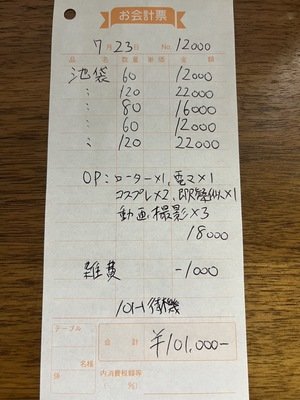 お会計票
7月23日 No. 12000
品名 数量 単価 金額
池袋 60 12000
〃 120 22000
〃 80 16000
〃 60 12000
〃 120 22000
OP: ローター×1、電マ×1
コスプレ×2、即尺×1
動画撮影×3
18000
雑費 -1000
101-1待機
テーブル
名様
係
合計 ¥101,000-
内消費税額等
( %)